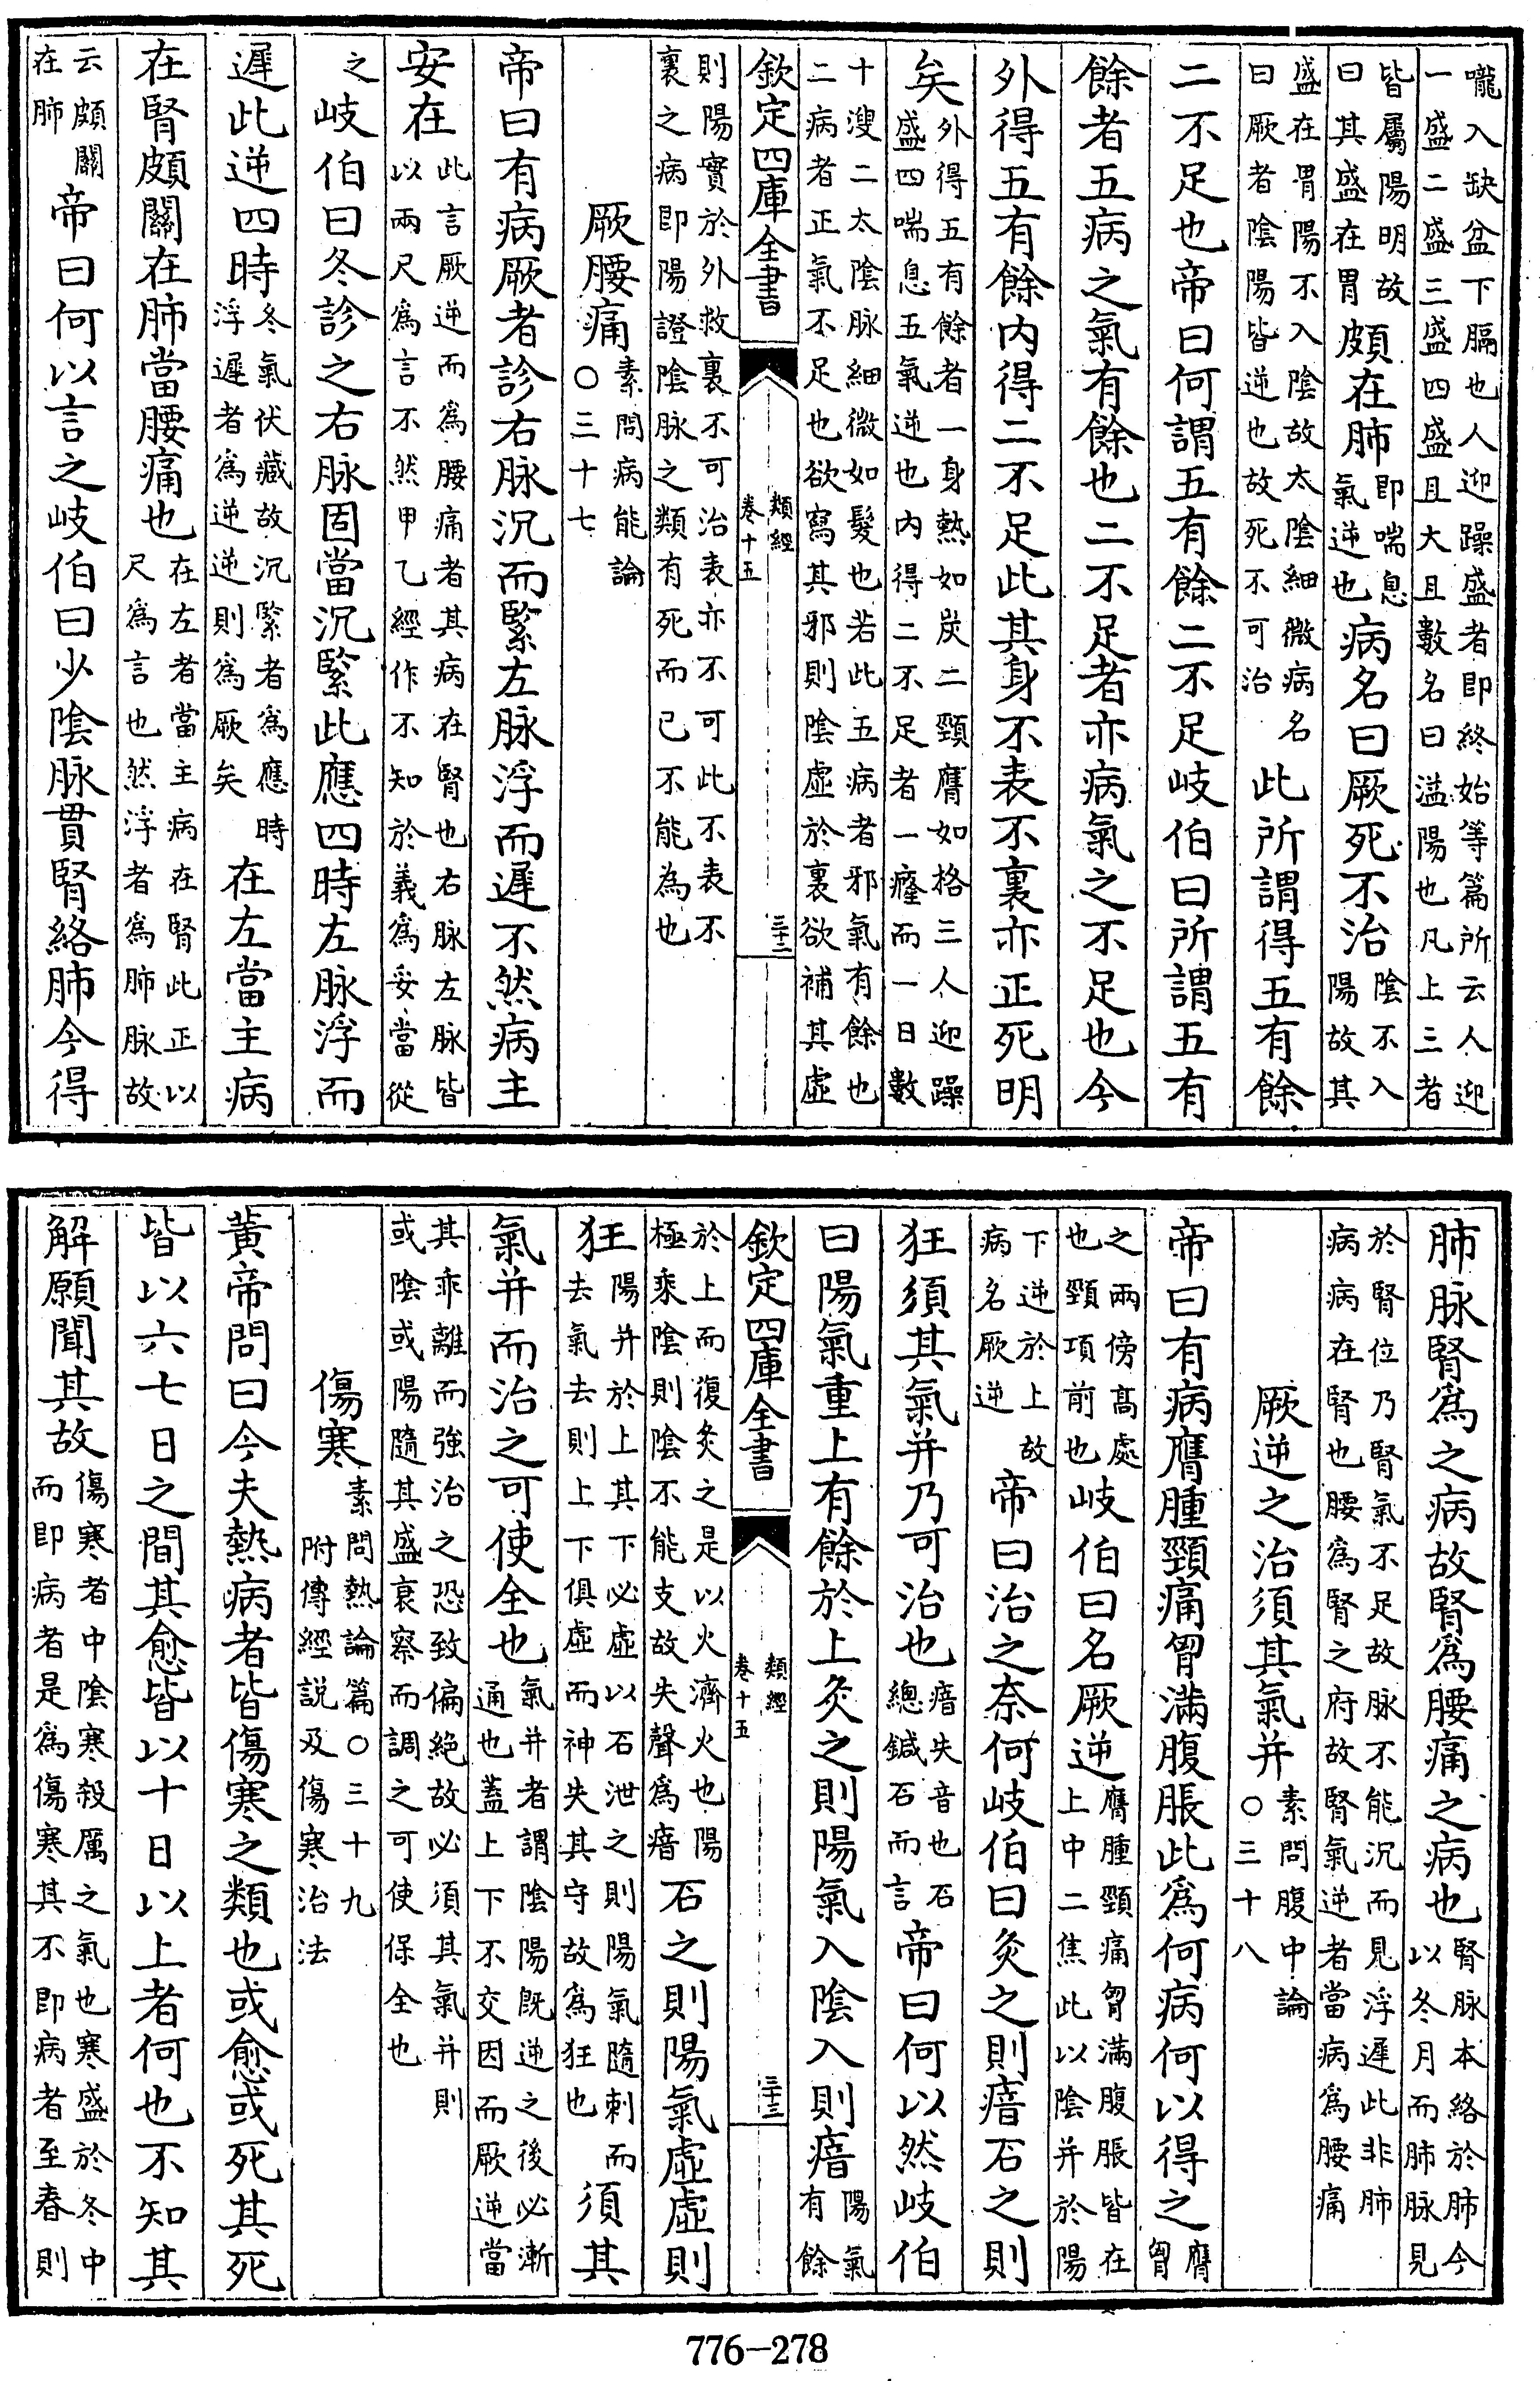 嚨入缺盆下膈也人迎躁盛者即終始等篇所云人迎
一盛二盛三盛四盛且大且數名曰溢陽也凡上三者
皆屬陽明故曰其盛在胃頗在肺即喘息氣逆也病名曰厥死不治陰不入陽故其
盛在胃陽不入陰故太陰細微病名曰厥者陰陽皆逆也故死不可治此所謂得五有餘
二不足也帝曰何謂五有餘二不足岐伯曰所謂五有
餘者五病之氣有餘也二不足者亦病氣之不足也今
外得五有餘内得二不足此其身不表不裏亦正死明
矣外得五有餘者一身熱如炭二頸膺如格三人迎躁盛四喘息五氣逆也内得二不足者一癃而一日數
十溲二太陰脉細微如髮也若此五病者邪氣有餘也
二病者正氣不足也欲寫其邪則陰虛於裏欲補其虛
欽定四庫全書 類經 卷十五 三十二
則陽實於外救裏不可治表亦不可此不表不
裏之病即陽證陰脉之類有死而已不能為也
厥腰痛素問病能論○三十七
帝曰有病厥者診右脉沉而緊左脉浮而遲不然病主
安在此言厥逆而為腰痛者其病在腎也右脉左脉皆以兩尺為言不然甲乙經作不知於義為妥當從
之岐伯曰冬診之右脉固當沉緊此應四時左脉浮而
遲此逆四時冬氣伏藏故沉緊者為應時浮遲者為逆逆則為厥矣在左當主病
在腎頗關在肺當腰痛也在左者當主病在腎此正以尺為言也然浮者為肺脉故
云頗關在肺帝曰何以言之岐伯曰少陰脉貫腎絡肺今得
肺脉腎為之病故腎為腰痛之病也腎脉本絡於肺今以冬月而肺脉見
於腎位乃腎氣不足故脉不能沉而見浮遲此非肺
病病在腎也腰為腎之府故腎氣逆者當病為腰痛
厥逆之治須其氣并素問腹中論○三十八
帝曰有病膺腫頸痛胷滿腹脹此為何病何以得之膺胷
之兩傍高處也頸項前也岐伯曰名厥逆膺腫頸痛胷滿腹脹皆在上中二焦此以陰并於陽
下逆於上故病名厥逆帝曰治之奈何岐伯曰灸之則瘖石之則
狂須其氣并乃可治也瘖失音也石總鍼石而言帝曰何以然岐伯
曰陽氣重上有餘於上灸之則陽氣入陰入則瘖陽氣有餘
欽定四庫全書 類經 卷十五 三十三
於上而復灸之是以火濟火也陽極乘陰則陰不能支故失聲為瘖石之則陽氣虛虛則
狂陽并於上其下必虛以石泄之則陽氣隨刺而去氣去則上下俱虛而神失其守故為狂也須其
氣并而治之可使全也氣并者謂陰陽既逆之後必漸通也蓋上下不交因而厥逆當
其乖離而強治之恐致偏絕故必須其氣并則
或陰或陽隨其盛衰察而調之可使保全也
傷寒素問熱論篇○三十九附傳經説及傷寒治法
黃帝問曰今夫熱病者皆傷寒之類也或愈或死其死
皆以六七日之間其愈皆以十日以上者何也不知其
解願聞其故傷寒者中陰寒殺厲之氣也寒盛於冬中而即病者是為傷寒其不即病者至春則
776-278